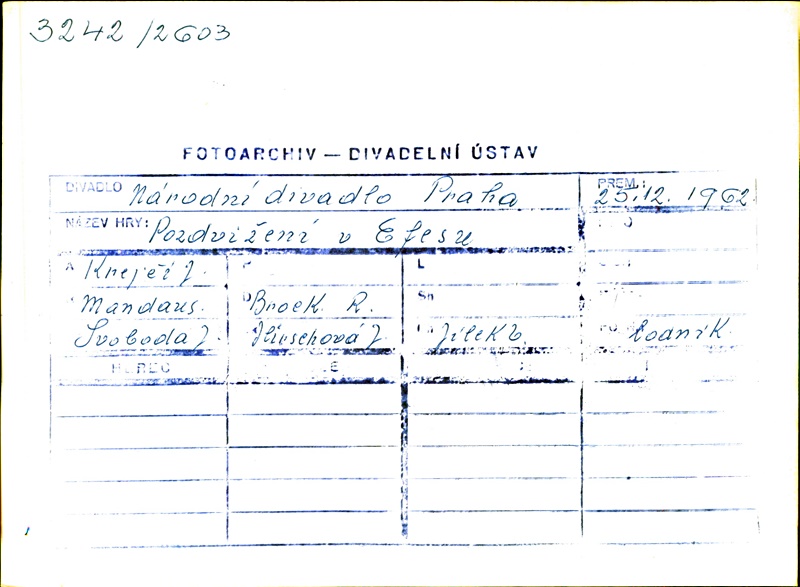 3242/2603
FOTOARCHIV — DIVADELNÍ ÚSTAV
DIVADLO Národní divadlo Praha PREM.: 25.12. 1962
NÁZEV HRY: Pozdvižení v Efesu
A Krejčí J. L
Mandaus. D Brock R. Sn
Svoboda J. Hirschová J. Jílek b. Lodnik
HEREC